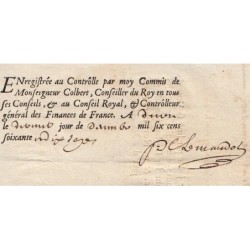 ENregistrée au Contrôlle par moy Commis de
Monseigneur Colbert, Conseiller du Roy en tous
ses Conseils, & au Conseil Royal, & Contrôleur
général des Finances de France. A
le jour de mil six cens
soixante